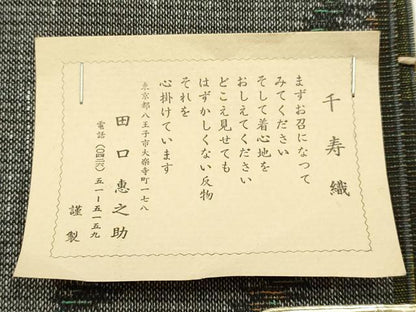 千寿織
まずお召になつて
みてください
そして着心地を
おしえてください
どこえ見せても
はずかしくない反物
それを
心掛けています
東京都八王子市大楽寺町一七八
田口惠之助
電話(〇四二六)五一-五一五九
謹製